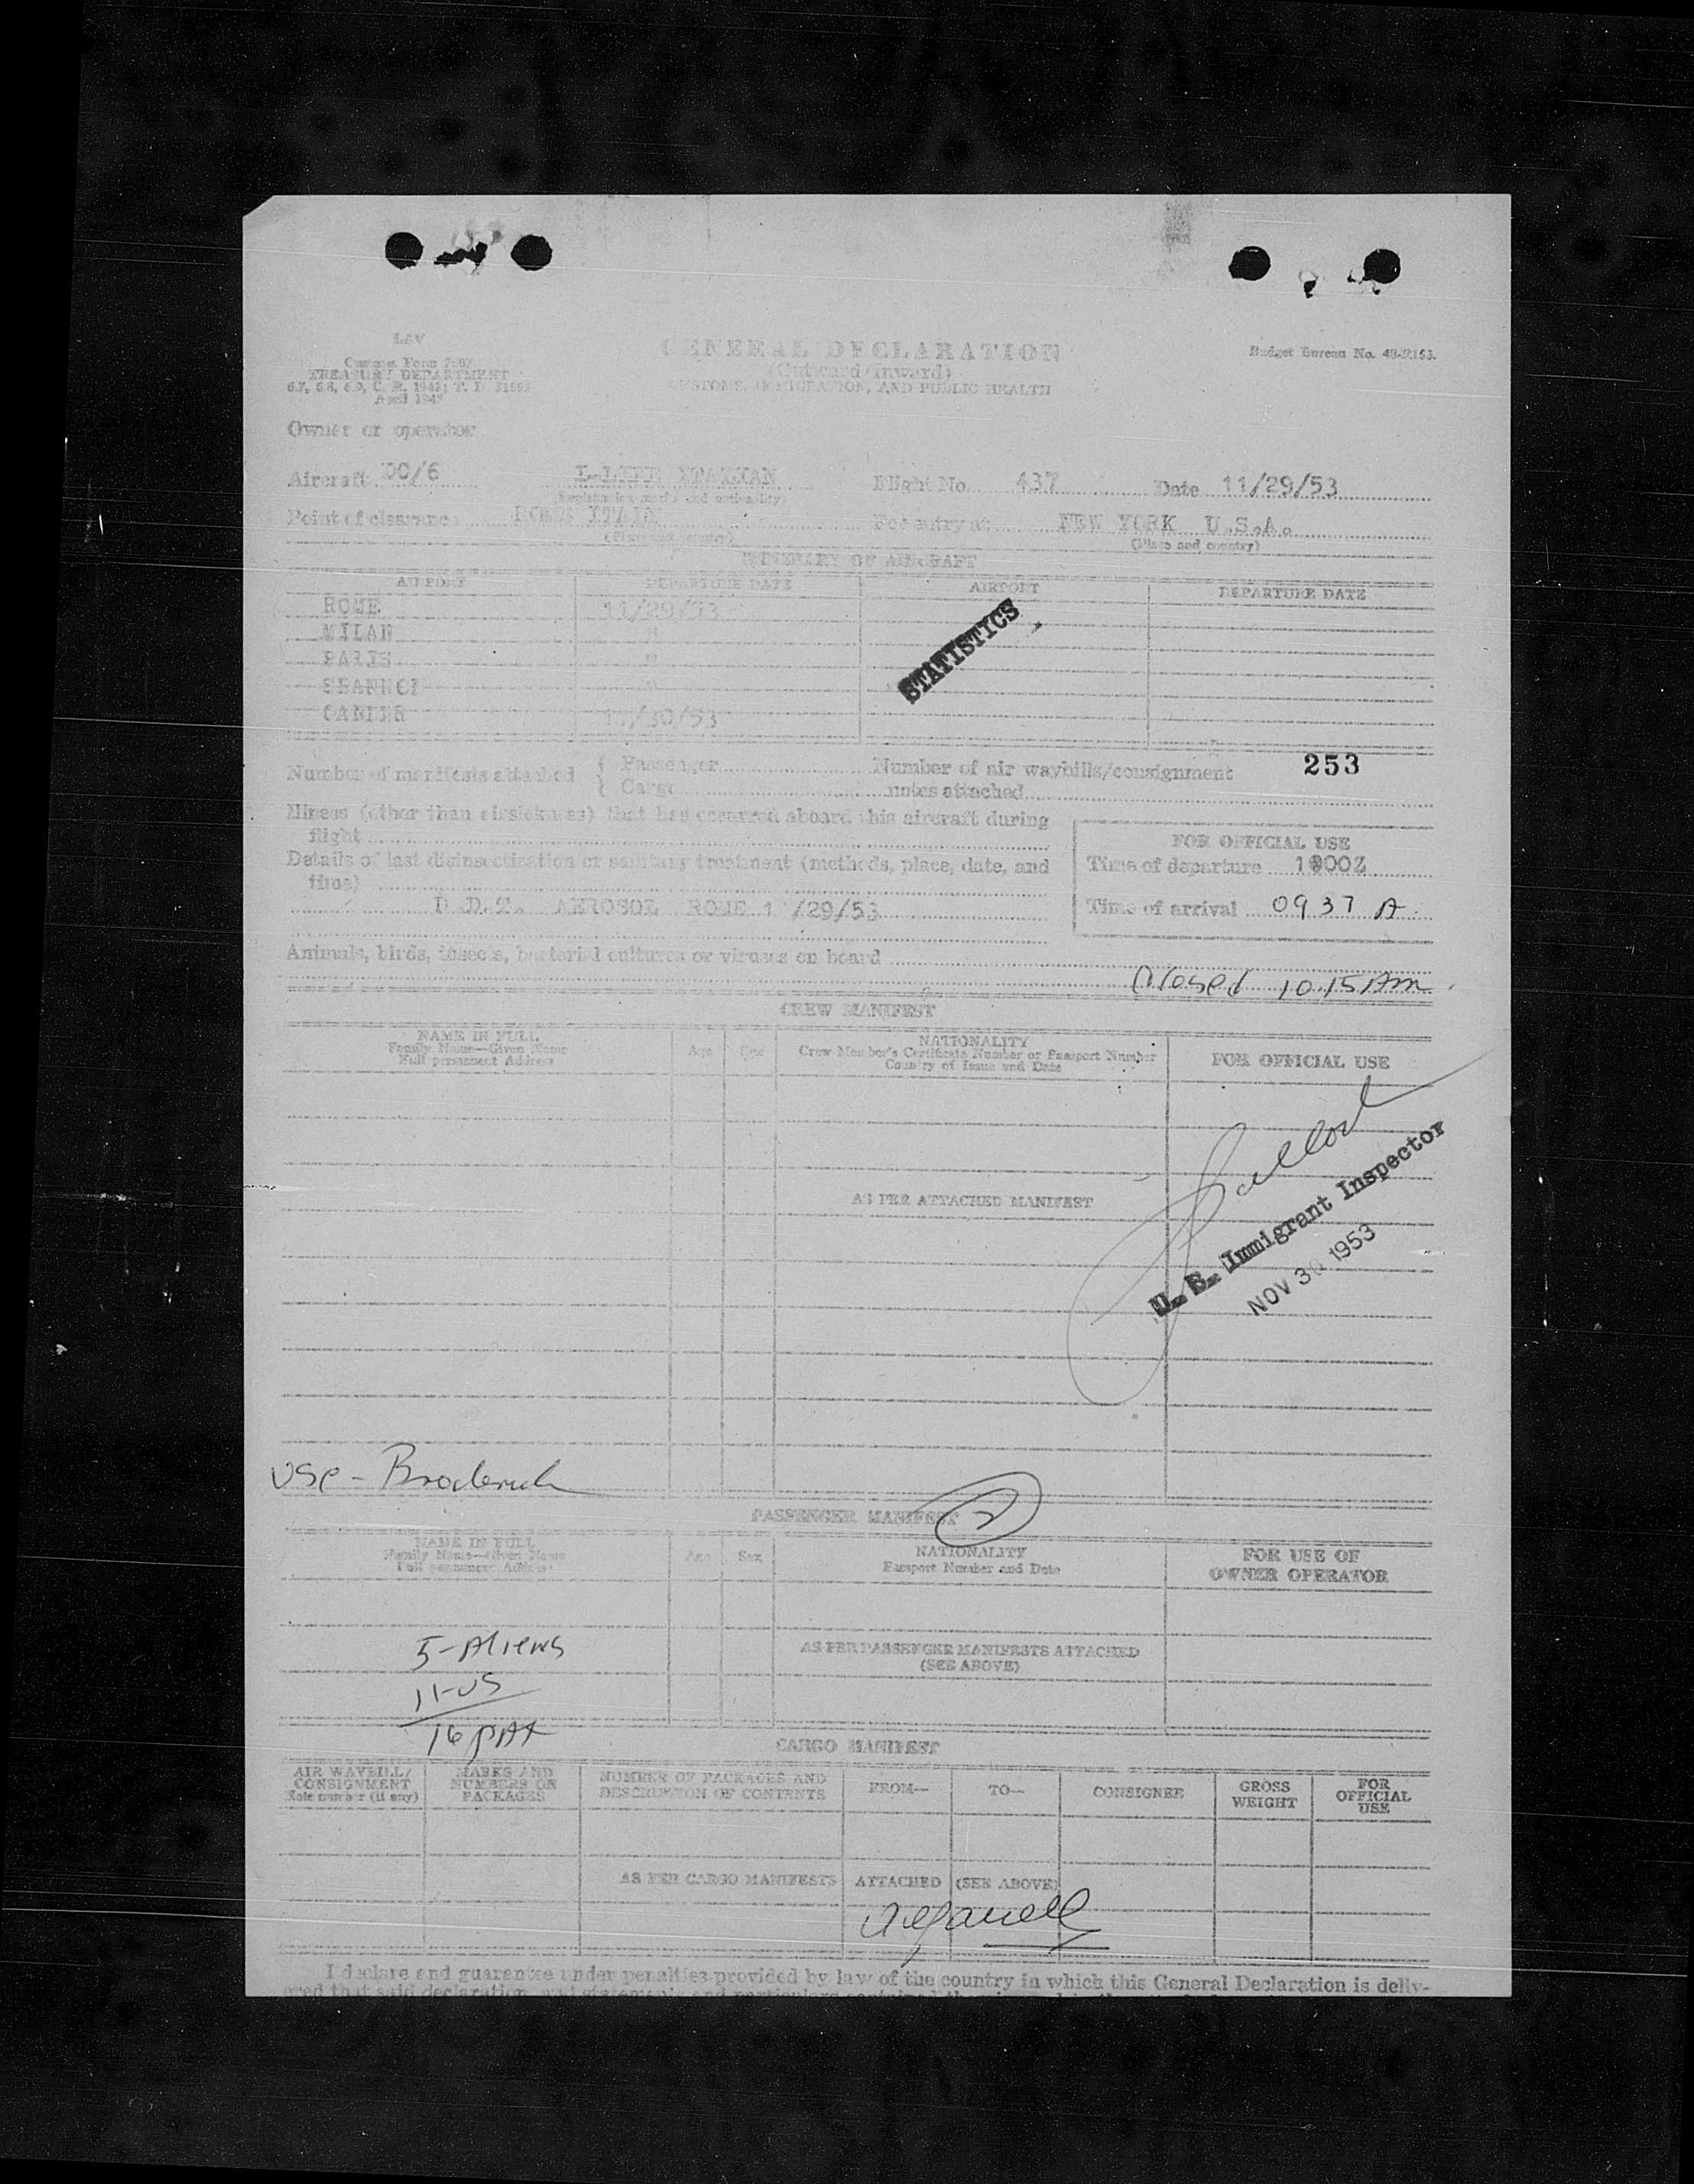 LAV
Customs Form 7507
TREASURY DEPARTMENT
6.7, 6.8, 6.9, C. R. 1943; T. D.
April 1947
GENERAL DECLARATION
(Outward/Inward)
CUSTOMS, IMMIGRATION, AND PUBLIC HEALTH
Budget Bureau No. 48-R153.
Owner or operator
Aircraft DC/6 ITALIAN Flight No. 437 Date 11/29/53
(Registration marks and nationality)
Point of clearance ROME For entry at NEW YORK U.S.A.
(Place and country) (Place and country)
ITINERARY OF AIRCRAFT
AIRPORT DEPARTURE DATE AIRPORT DEPARTURE DATE
ROME 11/29/53
MILAN "
PARIS "
SHANNON "
GANDER 11/30/53
STATISTICS
253
Number of manifests attached { Passenger Number of air waybills/consignment
{ Cargo notes attached
Illness (other than airsickness) that has occurred aboard this aircraft during
flight
Details of last disinsectization or sanitary treatment (methods, place, date, and
time)
D.D.T. AEROSOL ROME 1 /29/53
FOR OFFICIAL USE
Time of departure
Time of arrival 0937 A
Animals, birds, insects, bacterial cultures or viruses on board
Closed 10.15 AM
CREW MANIFEST
NAME IN FULL
Family Name—Given Name
Full permanent Address
Age Sex
NATIONALITY
Crew Member's Certificate Number or Passport Number
Country of Issue and Date
FOR OFFICIAL USE
AS PER ATTACHED MANIFEST
U. S. Immigrant Inspector
NOV 30 1953
PASSENGER MANIFEST
2
NAME IN FULL
Family Name—Given Name
Full permanent Address
Age Sex
NATIONALITY
Passport Number and Date
FOR USE OF
OWNER OPERATOR
AS PER PASSENGER MANIFESTS ATTACHED
(SEE ABOVE)
5-Aliens
11-US
16 PAX
CARGO MANIFEST
AIR WAYBILL/
CONSIGNMENT
Note number (if any)
MARKS AND
NUMBERS ON
PACKAGES
NUMBER OF PACKAGES AND
DESCRIPTION OF CONTENTS
FROM—
TO—
CONSIGNEE
GROSS
WEIGHT
FOR
OFFICIAL
USE
AS PER CARGO MANIFESTS ATTACHED (SEE ABOVE)
I declare and guarantee under penalties provided by law of the country in which this General Declaration is deliv-